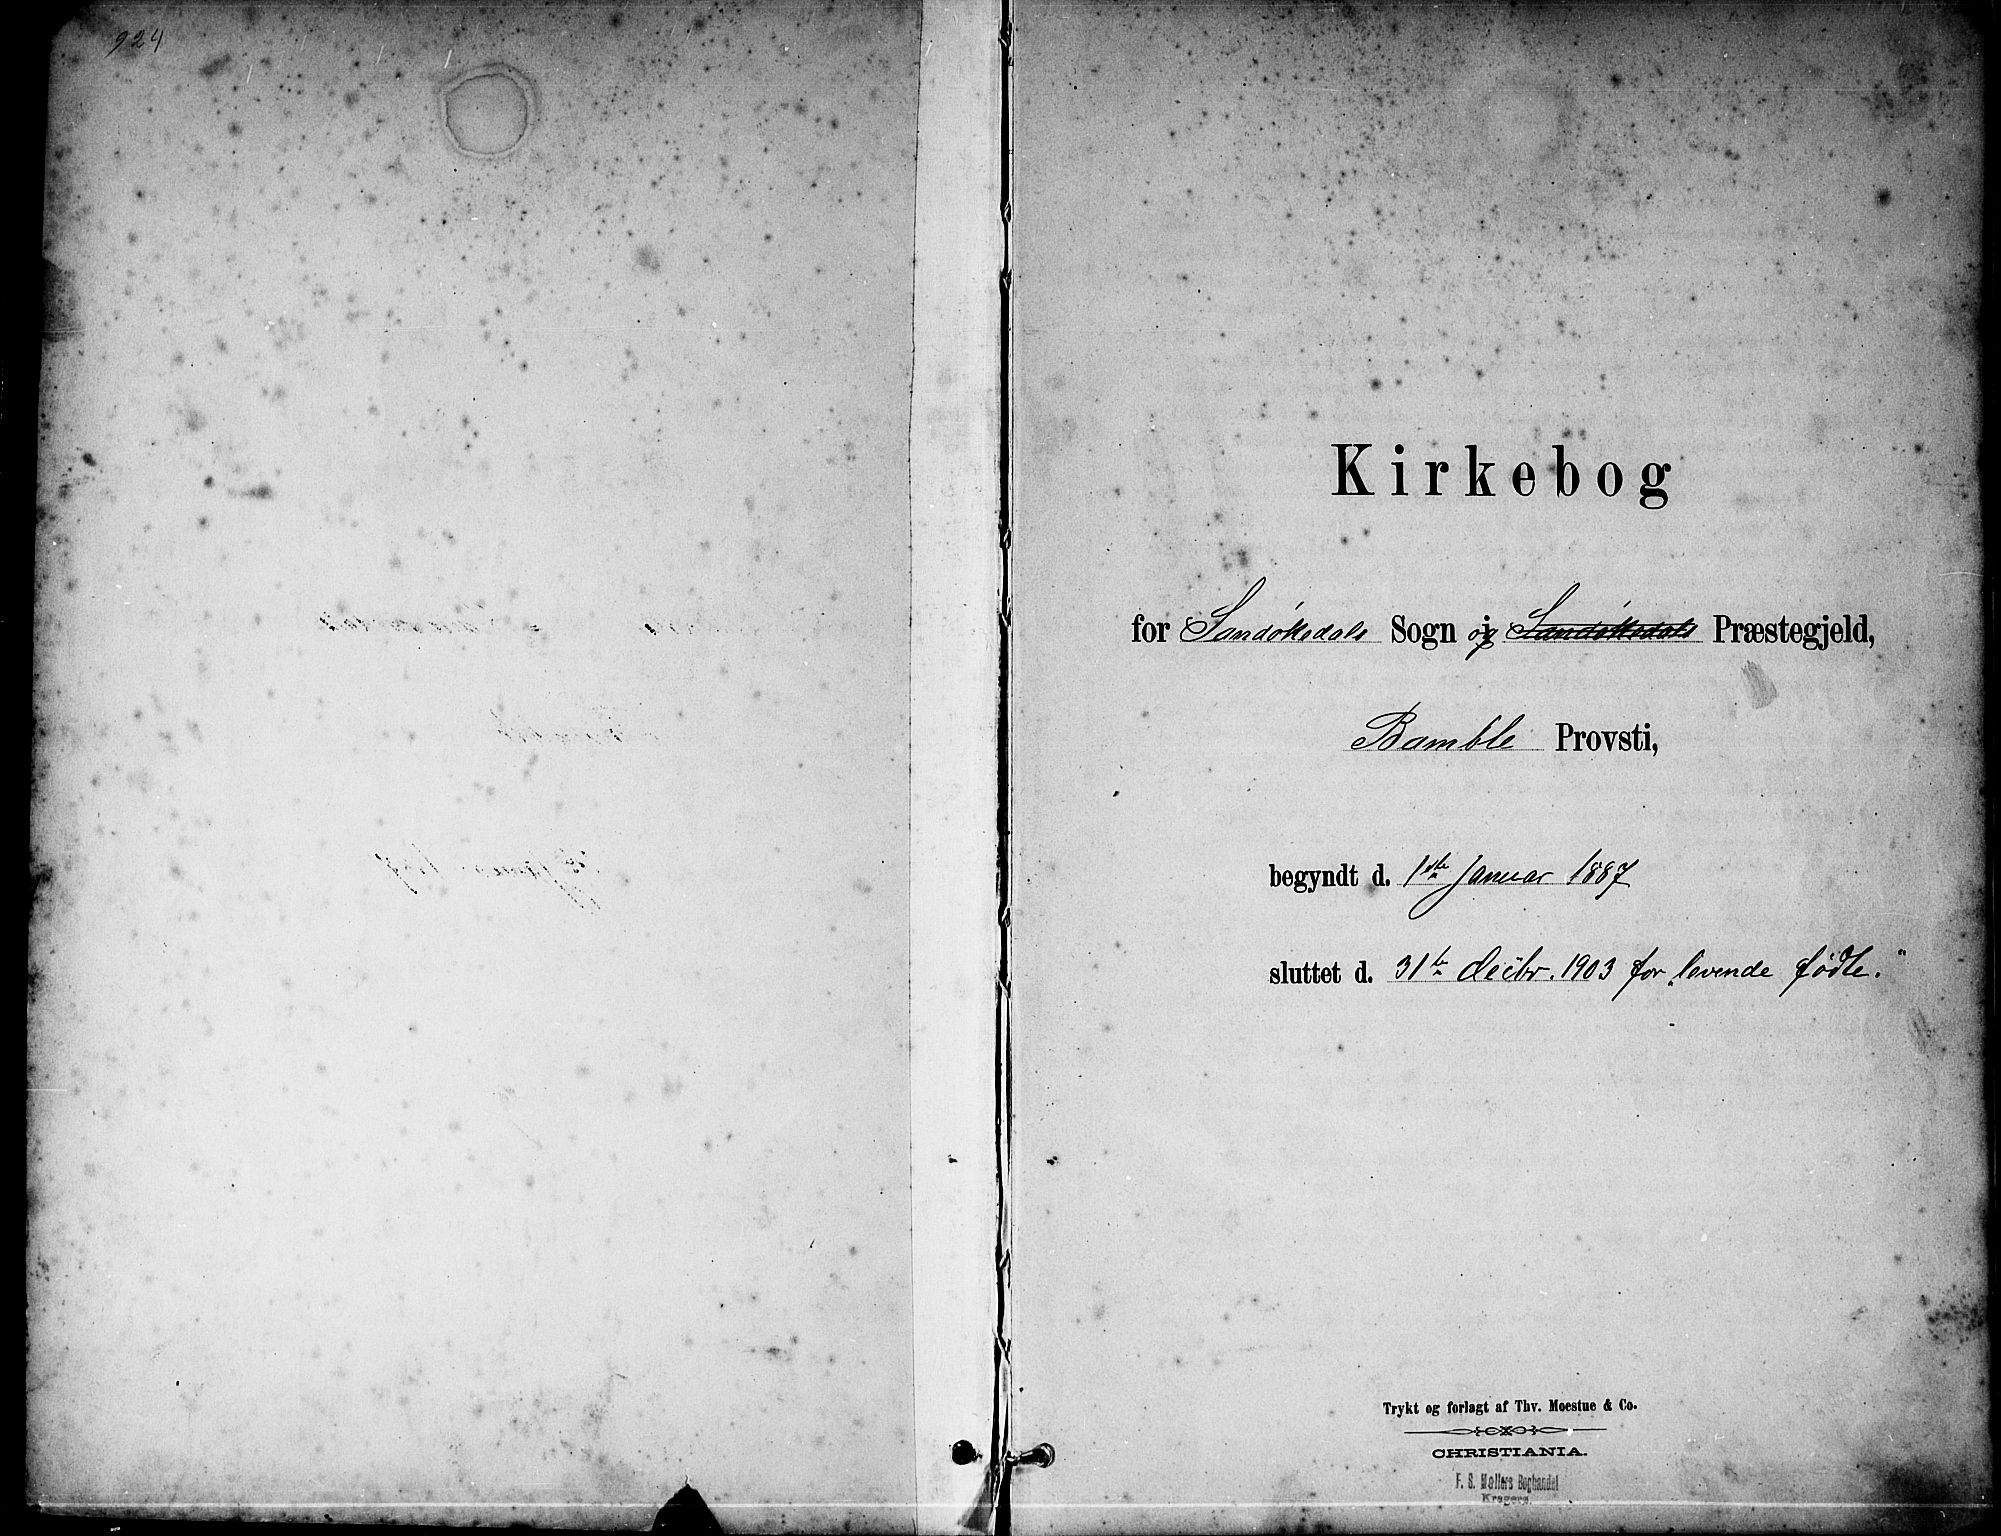 924
Kirkebog
for Sandøkedals Sogn og i Sandøkedals Præstegjeld,
Bamble Provsti,
begyndt d. 1ste Januar 1887
sluttet d. 31te decbr. 1903 for „levende fødte.“
Trykt og forlagt af Thv. Moestue & Co.
CHRISTIANIA.
F. S. Møllers Boghandel
Kragerø.